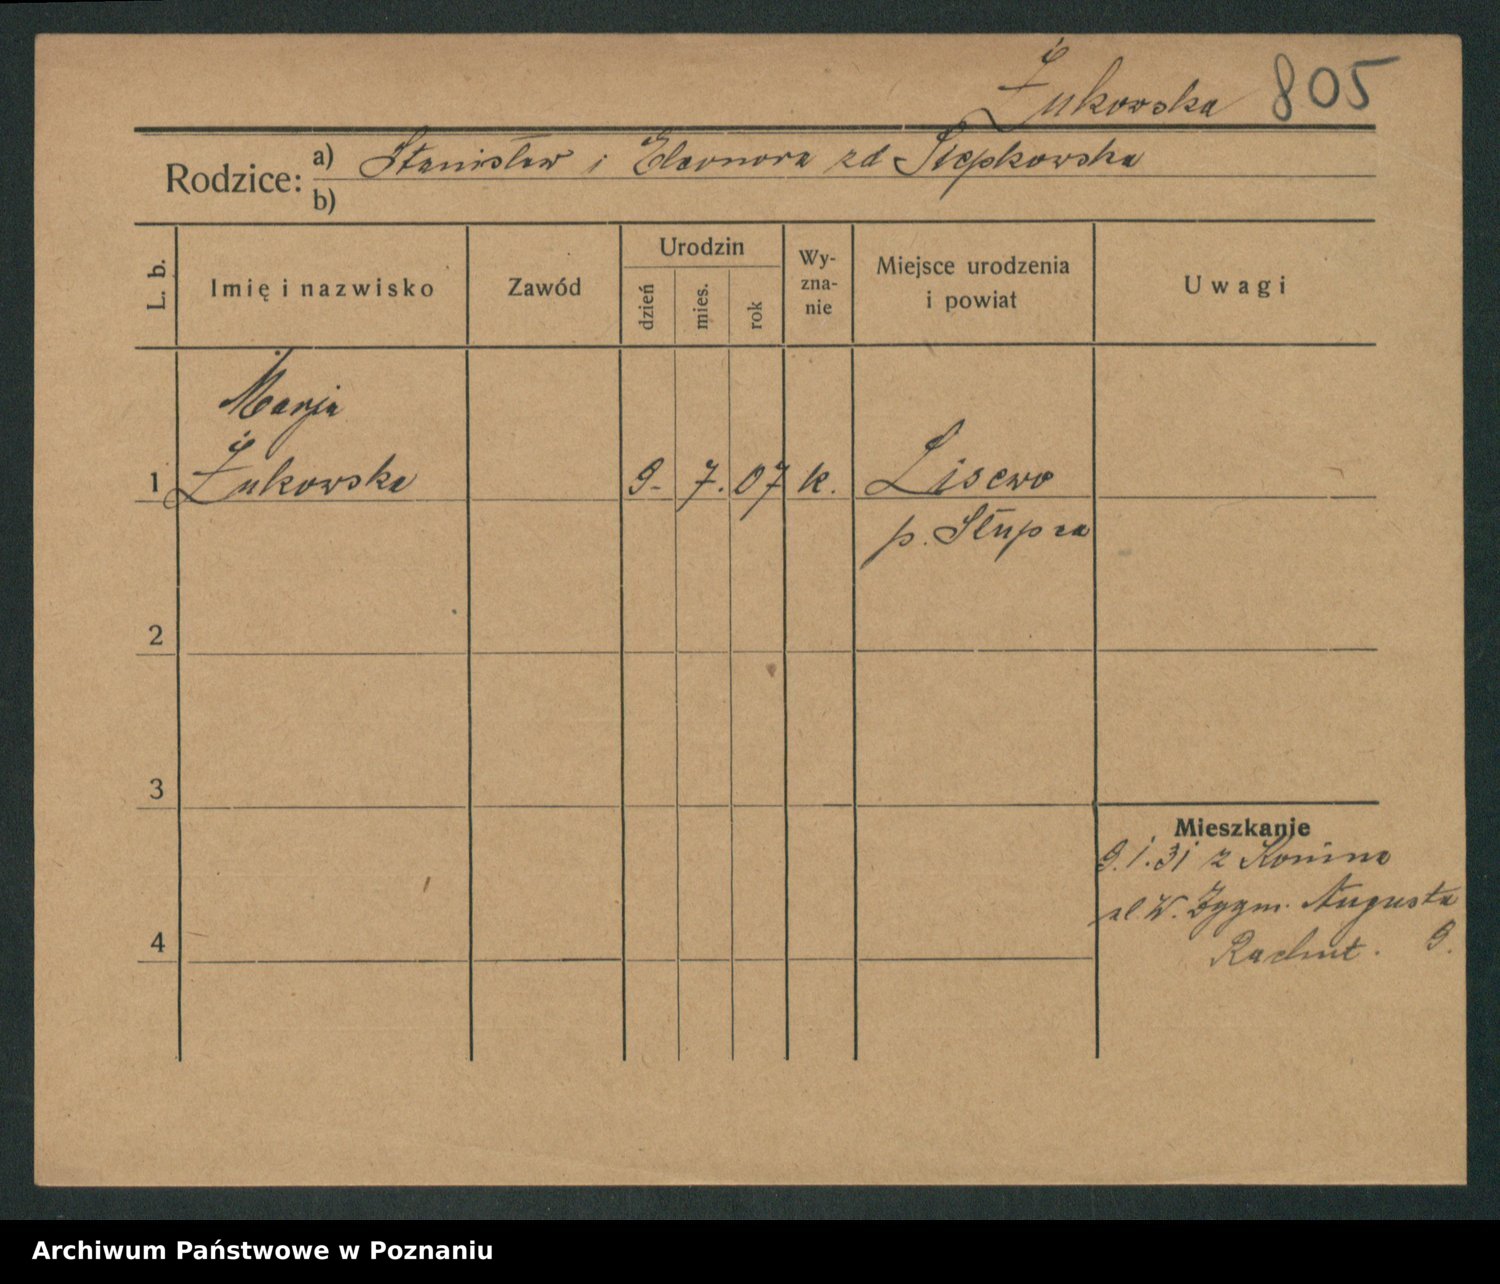 Żukowska 805
Rodzice: a) Stanisław i Eleonora zd Stępkowska
b)
L. b.
Imię i nazwisko
Zawód
Urodzin
dzień
mies.
rok
Wy-
zna-
nie
Miejsce urodzenia
i powiat
Uwagi
Marja
1 Żukowska 9. 7. 07 k. Lisewo
p. Słupca
2
3
4
Mieszkanie
9.1.31 z Konina
Zygm. Augusta
9.
Archiwum Państwowe w Poznaniu